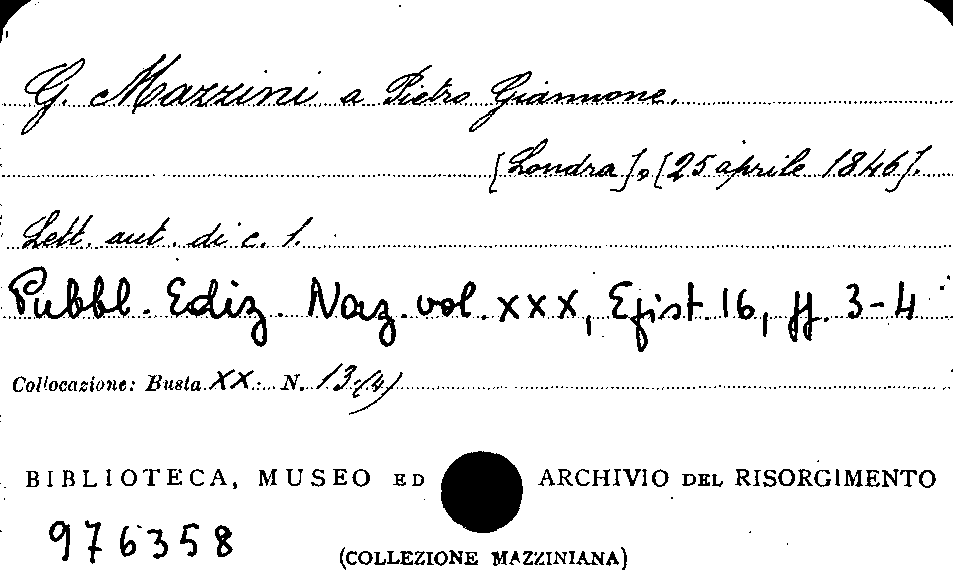 G. Mazzini a Pietro Giannone.
[Londra], [25 aprile 1846].
Lett. aut. di c. 1.
Pubbl. Ediz. Naz. vol. XXX, Epist. 16, pp. 3-4
Collocazione: Busta XX. N. 13(4)
BIBLIOTECA, MUSEO ED ARCHIVIO DEL RISORGIMENTO
976358
(COLLEZIONE MAZZINIANA)